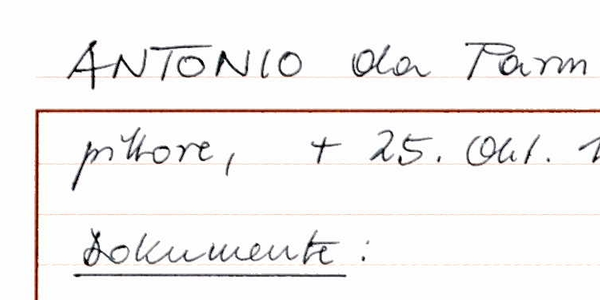 ANTONIO da Parm
pittore, + 25. Okt. 1
Dokumente: